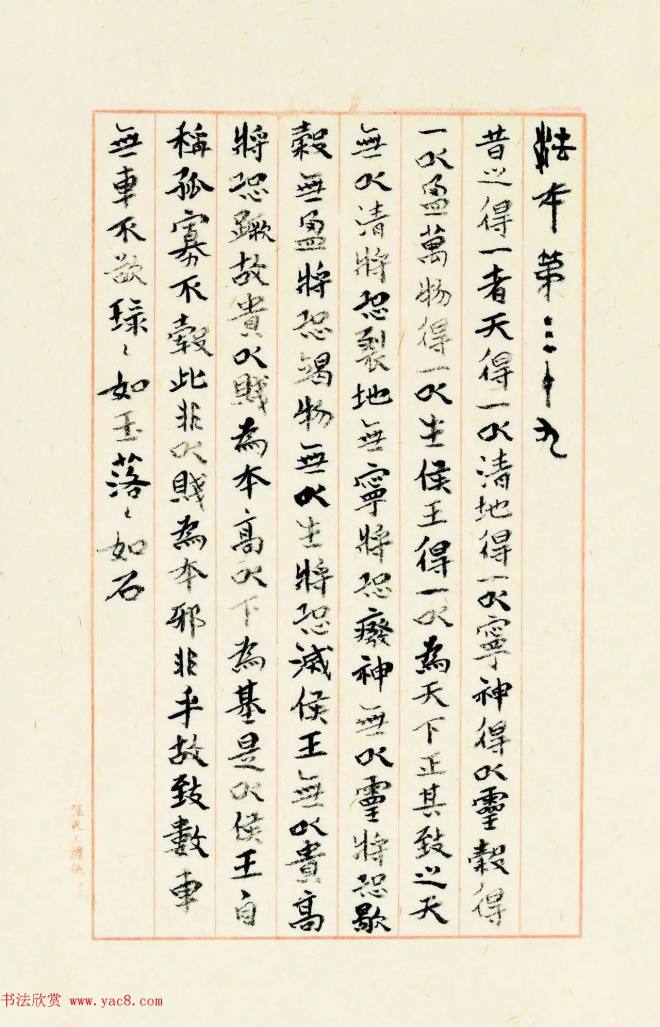 法本第三十九
昔之得一者天得一以清地得一以寧神得以靈穀得
一以盈萬物得一以生侯王得一以為天下正其致之天
無以清將恐裂地無寧將恐廢神無以靈將恐歇
穀無盈將恐竭物無以生將恐滅侯王無以貴高
將恐蹶故貴以賤為本高以下為基是以侯王自
稱孤寡不穀此非以賤為本邪非乎故致數車
無車不欲琭〻如玉落〻如石
书法欣赏 www.yac8.com